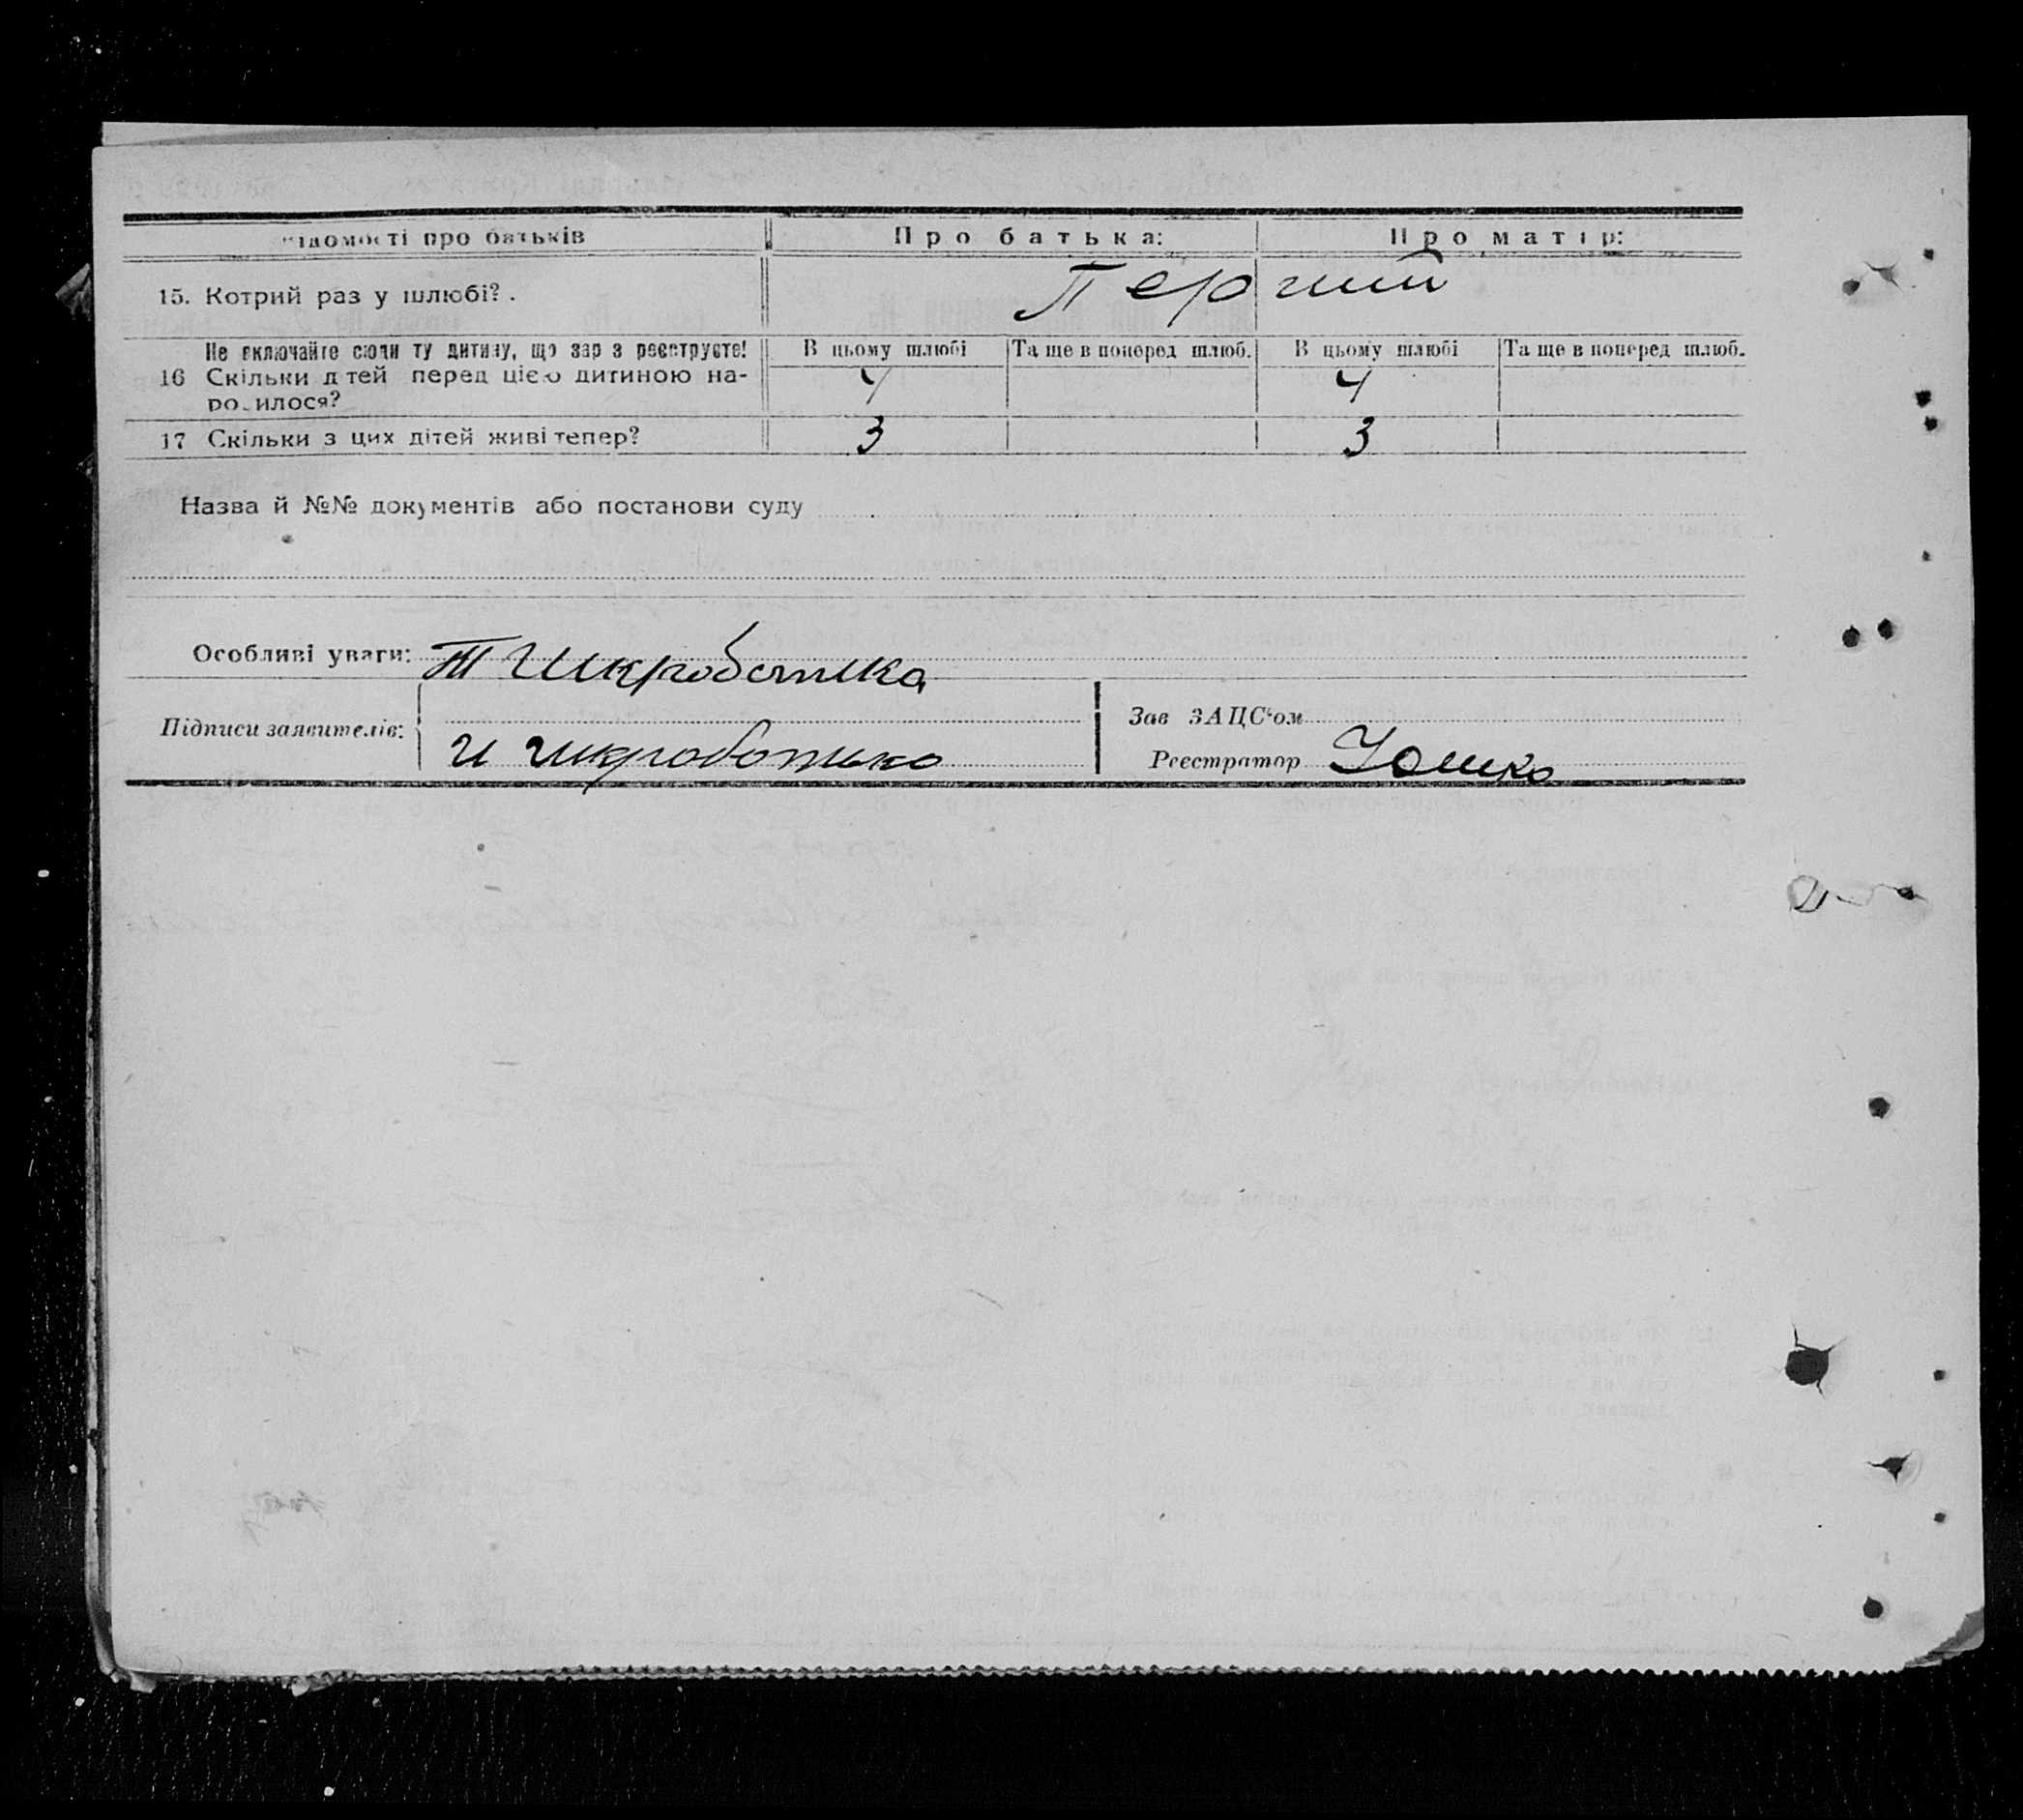 відомості про батьків Про батька: Про матір:
15. Котрий раз у шлюбі? . Перший
Не включайте сюди ту дитину, що зараз реєструєте! В цьому шлюбі Та ще в поперед шлюб. В цьому шлюбі Та ще в поперед шлюб.
16 Скільки дітей перед цією дитиною на- 4 4
родилося?
17 Скільки з цих дітей живі тепер? 3 3
Назва й №№ документів або постанови суду
Особливі уваги: Т Шкроботька
Підписи заявителів: Зав ЗАЦС'ом
И Шкроботько Реєстратор Юшко